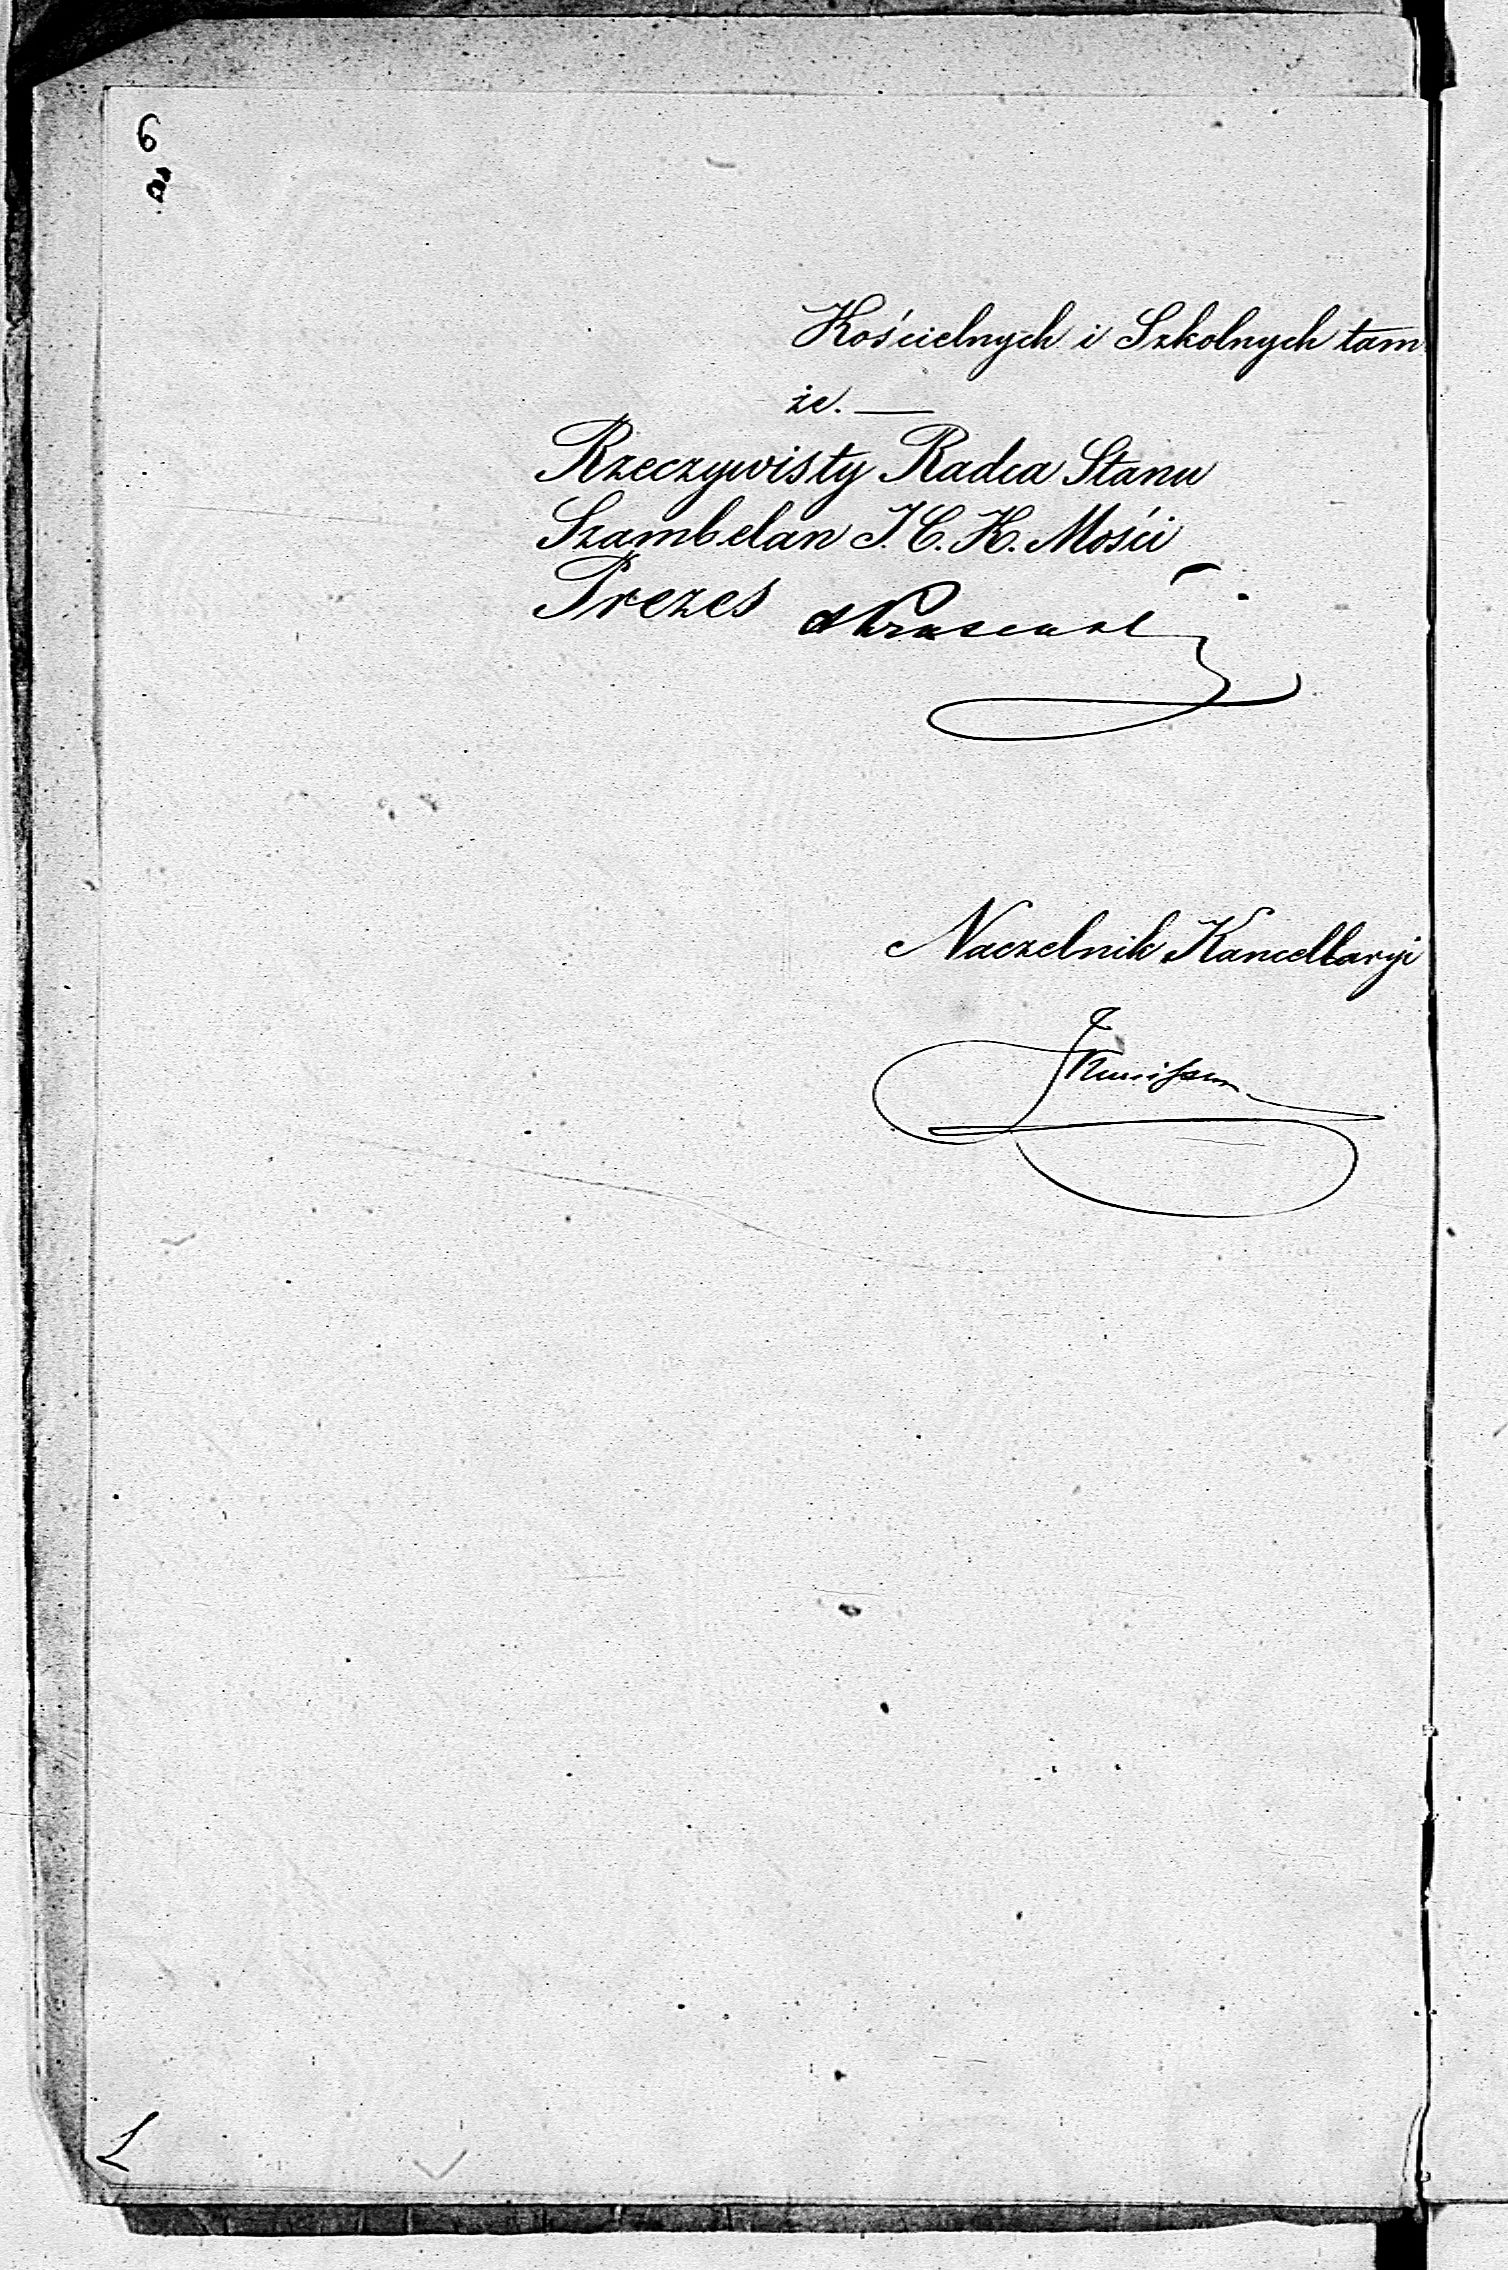 6
Kościelnych i Szkolnych tam
że. —
Rzeczywisty Radca Stanu
Szambelan J. C. K. Mości
Prezes
Naczelnik Kancellaryi